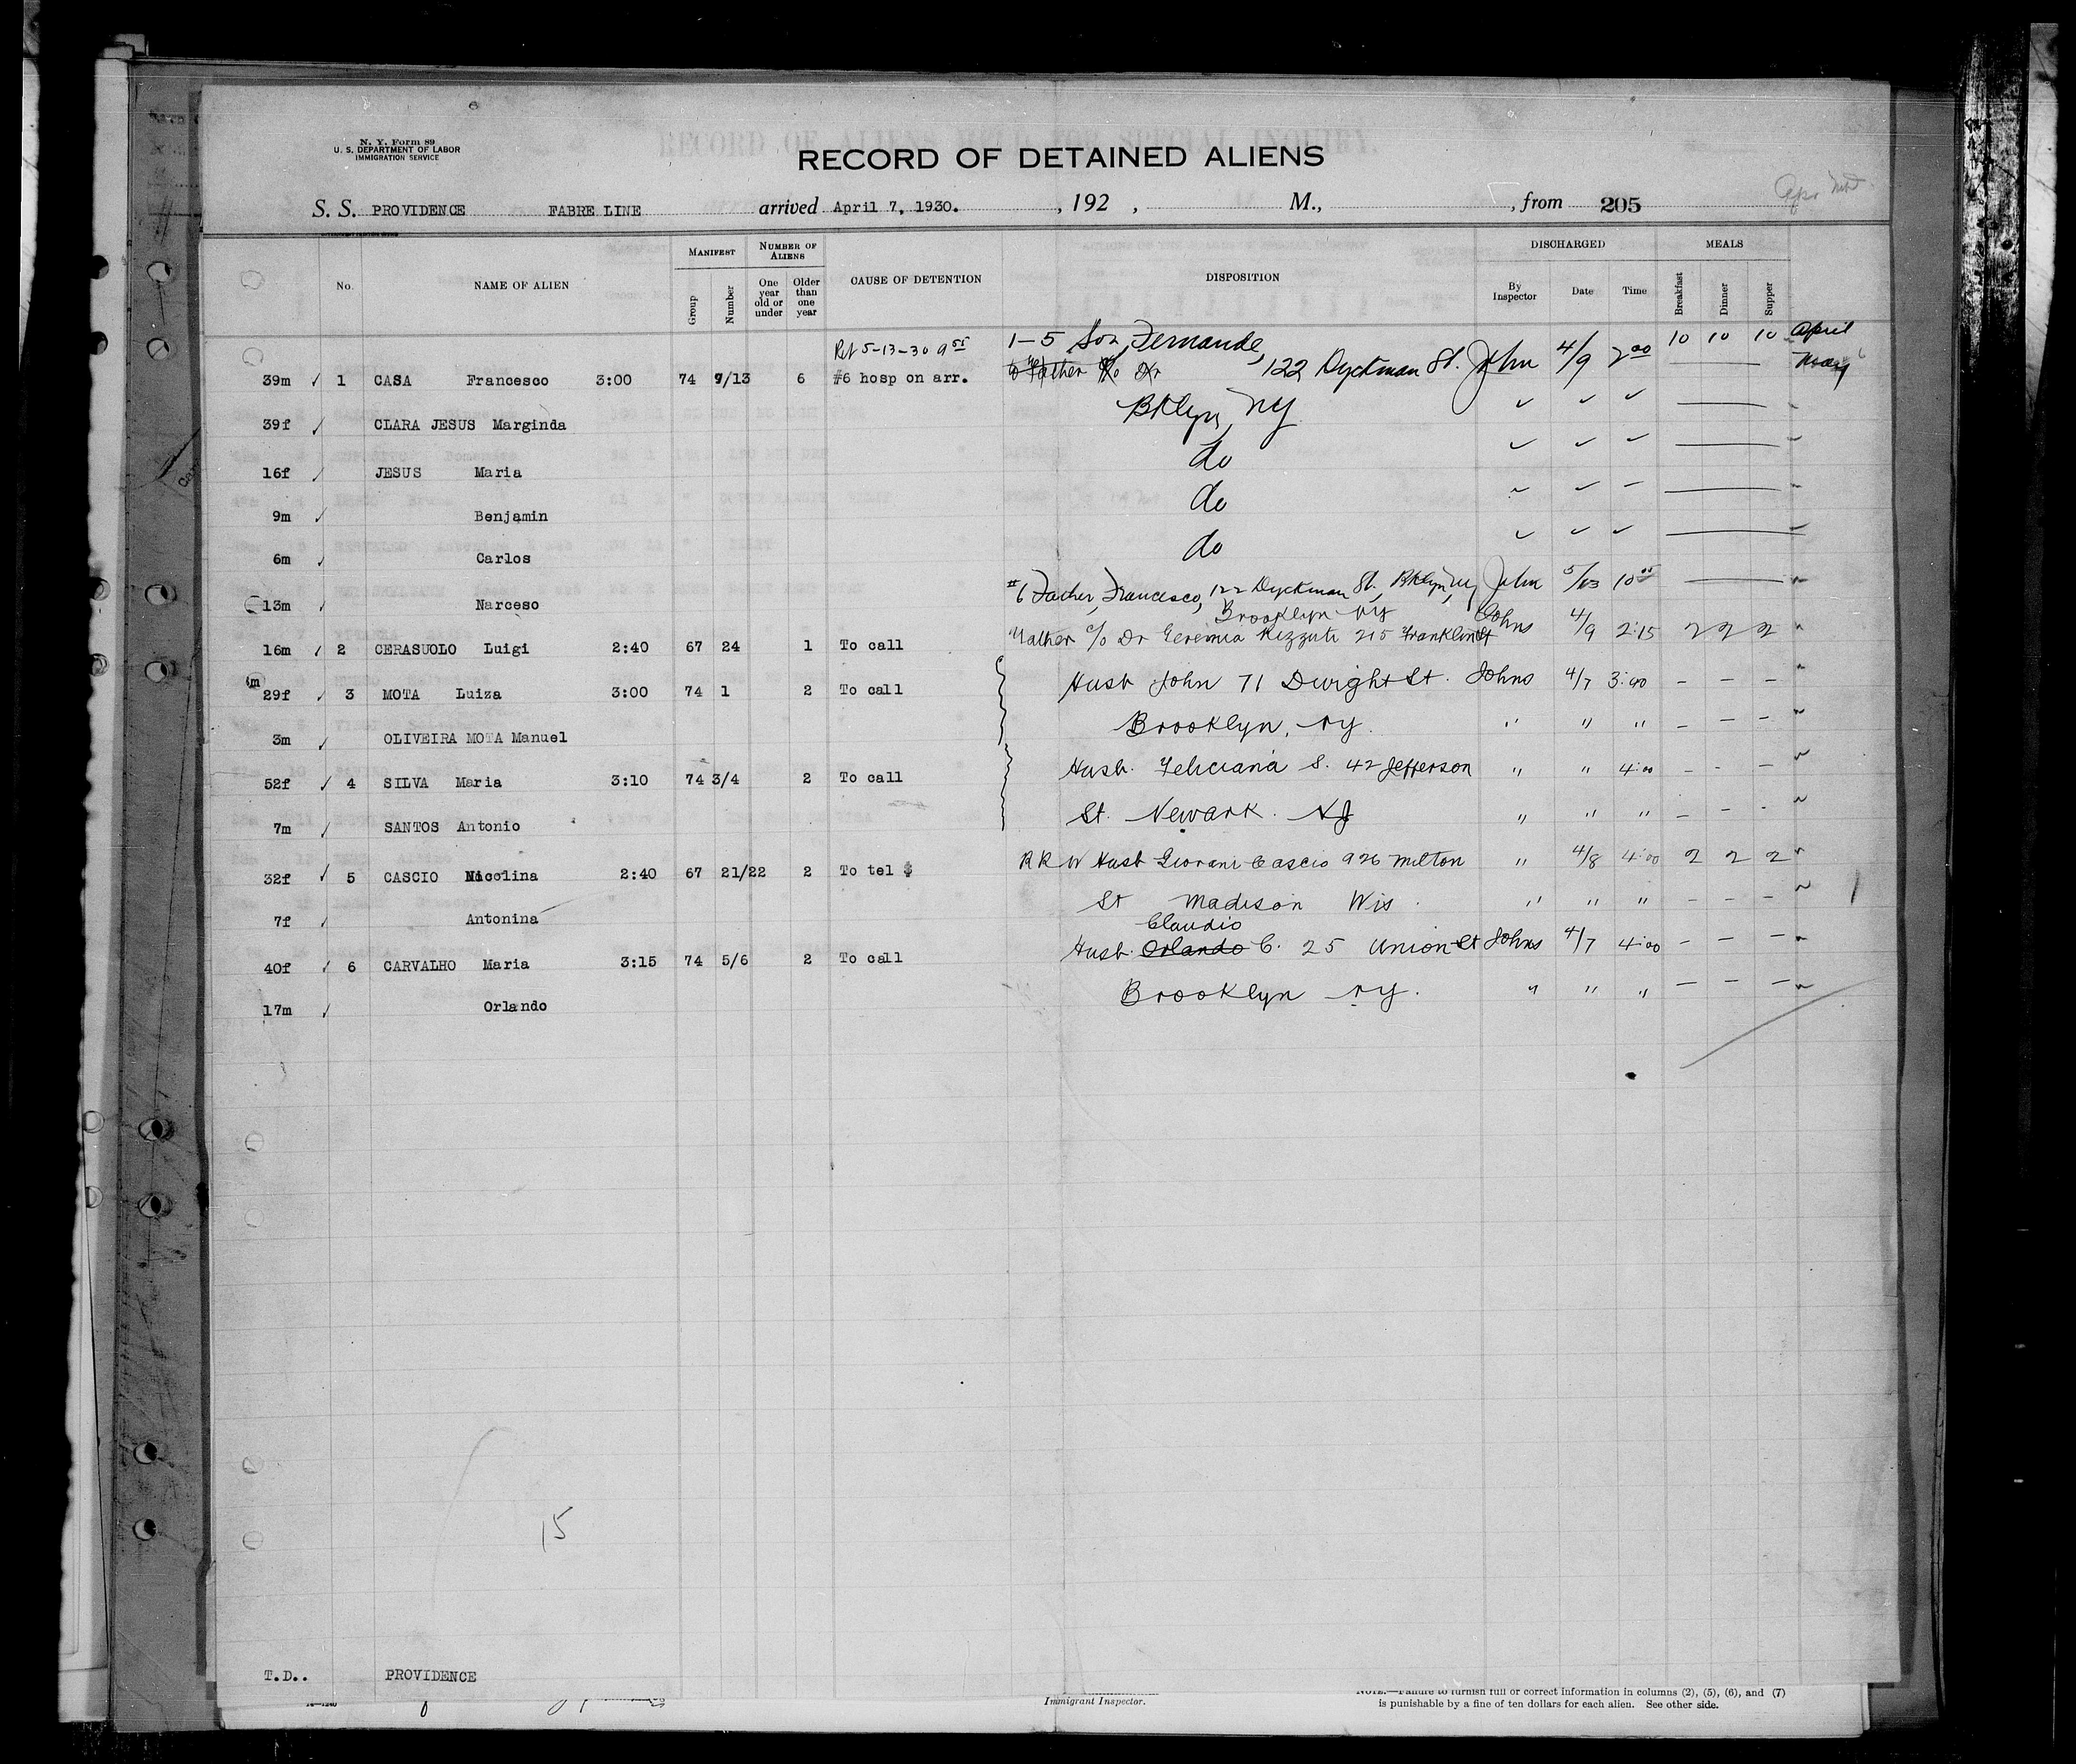 N. Y. Form 89
U. S. DEPARTMENT OF LABOR
IMMIGRATION SERVICE
RECORD OF ALIENS HELD FOR SPECIAL INQUIRY.
RECORD OF DETAINED ALIENS
S. S. PROVIDENCE FABRE LINE arrived April 7, 1930. , 192 , M., , from 205
No. NAME OF ALIEN MANIFEST Group Number NUMBER OF ALIENS One year old or under Older than one year CAUSE OF DETENTION DISPOSITION DISCHARGED By Inspector Date Time MEALS Breakfast Dinner Supper
Ret 5-13-30 9 55 1-5 Son, Fernande, 10 10 10 April
39m ✓ 1 CASA Francesco 3:00 74 7/13 6 #6 hosp on arr. Father 122 Dyckman St. John 4/9 2 00 — May
39f ✓ CLARA JESUS Marginda Bklyn, NY ✓ ✓ ✓ —
16f ✓ JESUS Maria do ✓ ✓ ✓ —
9m ✓ Benjamin do ✓ ✓ — —
6m ✓ Carlos do ✓ ✓ ✓ —
13m ✓ Narceso #6 Father, Francesco, 122 Dyckman St., Bklyn, NY John 5/13 10 05 —
Brooklyn NY
16m ✓ 2 CERASUOLO Luigi 2:40 67 24 1 To call Father c/o Dr Geremia Rizzuti 215 Franklin St Johns 4/9 2:15 2 2 2 "
m
29f ✓ 3 MOTA Luiza 3:00 74 1 2 To call Husb John 71 Dwight St. Johns 4/7 3:40 - - - "
3m ✓ OLIVEIRA MOTA Manuel Brooklyn, NY. " " " - - - "
52f ✓ 4 SILVA Maria 3:10 74 3/4 2 To call Husb. Feliciana S. 42 Jefferson " " 4:00 - - - "
7m ✓ SANTOS Antonio St. Newark. NJ " " " - - - "
32f ✓ 5 CASCIO Nicolina 2:40 67 21/22 2 To tel $ RR W Husb Giovani Cascio 926 Milton " 4/8 4:00 2 2 2 "
7f Antonina St Madison Wis. " " " - - - "
Claudio
40f ✓ 6 CARVALHO Maria 3:15 74 5/6 2 To call Husb. Orlando C. 25 Union St Johns 4/7 4:00 - - - "
17m ✓ Orlando Brooklyn NY. " " " - - - "
15
T.D.. PROVIDENCE
Immigrant Inspector.
NOTE.—Failure to furnish full or correct information in columns (2), (5), (6), and (7)
is punishable by a fine of ten dollars for each alien. See other side.